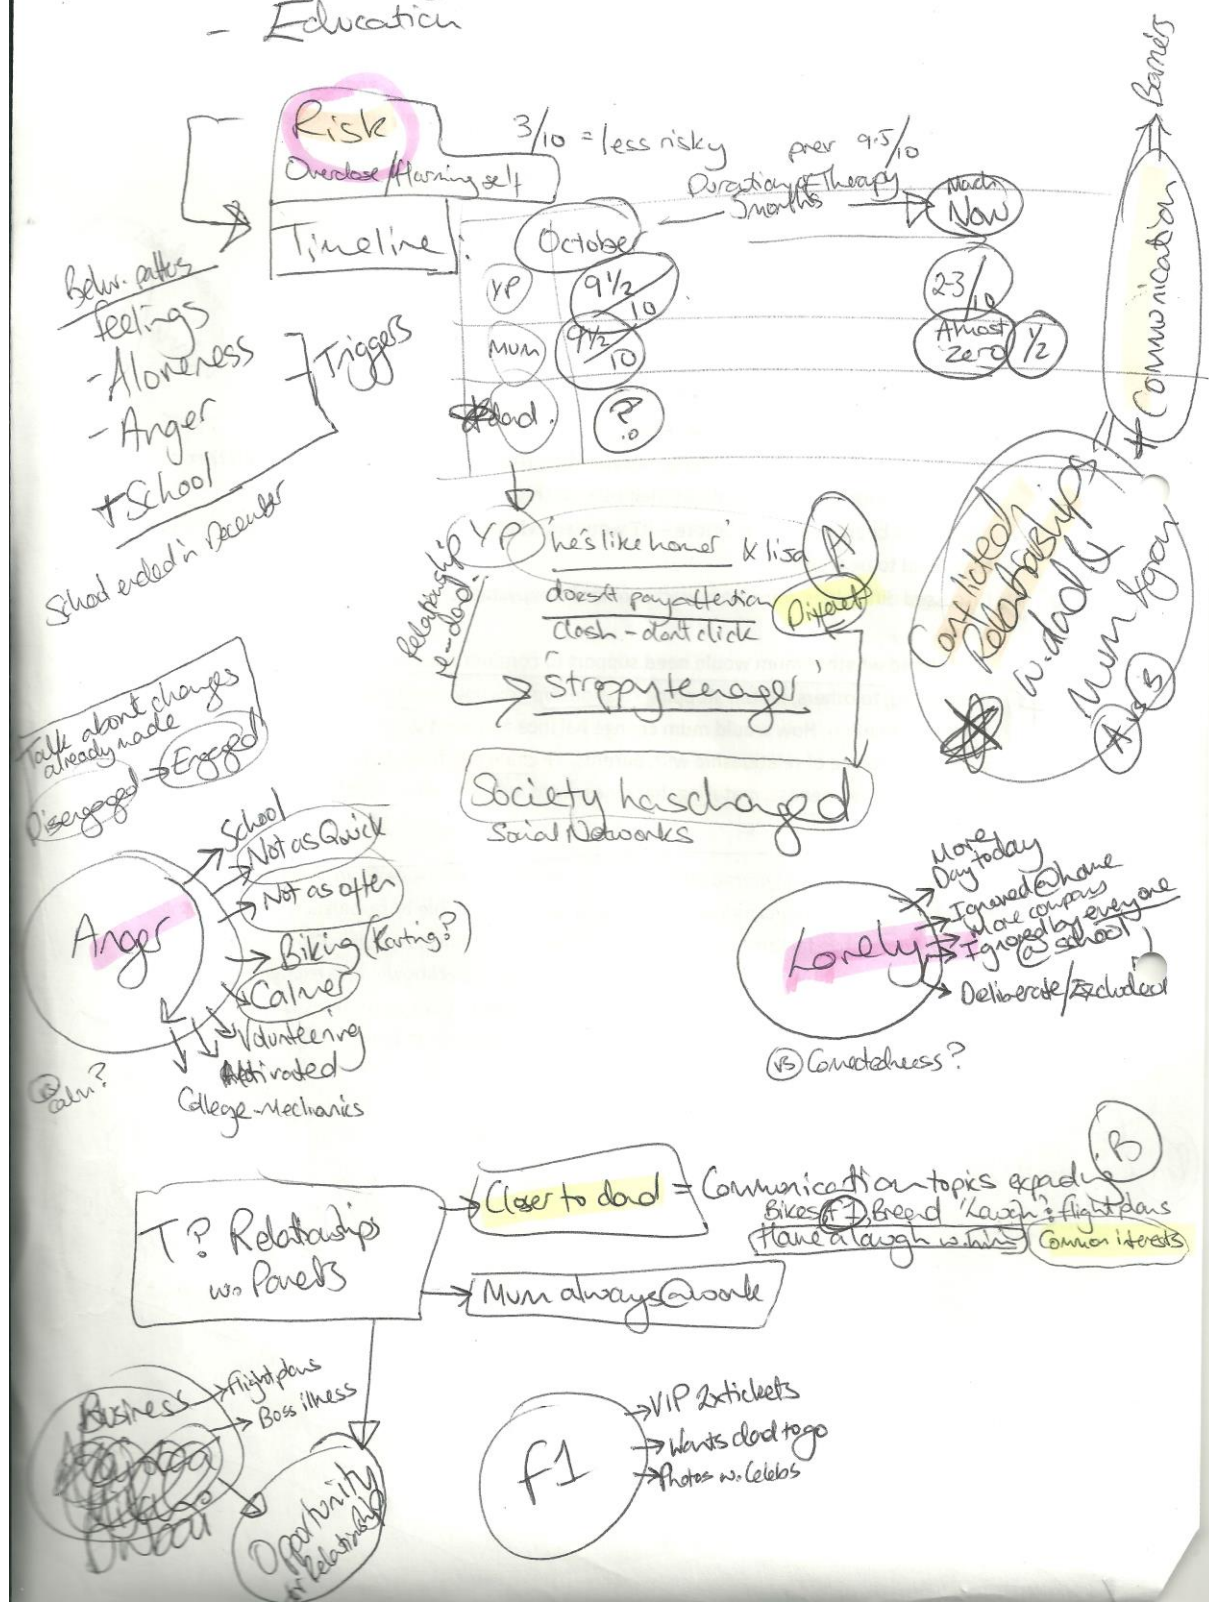 - Education
Risk
Overdose/Harming self
3/10 = less risky prev 9.5/10
Duration of Therapy
5 months
Timeline :
October
March
Now
YP 9 1/2 / 10 2-3/10
MUM 9 1/2 / 10 Almost Zero 1/2
dad. ?
Behv. patterns
Feelings
- Aloneness
- Anger
+ School
Triggers
School ended in December
+ Communication → Barriers
Conflicted
Relationships
w. dad &
Mum &gran
A vs B
Relationship
re-dad.
YP 'he's like homer' & lisa A
doesn't pay attention
Different
clash - don't click
'stroppy teenager'
Society has changed
Social Networks
Talk about changes
already made
Disengaged → Engaged
Anger
School
Not as Quick
Not as often
Biking (Karting?)
Calmer
Volunteering
Motivated
College - Mechanics
vs calm?
Lonely
More
Day today
Ignored @ home
More
Ignored by everyone
@ school
Deliberate/Excluded
vs Connectedness?
T? Relationships
w. Parents
Closer to dad = Communication topics expanding B
Bikes, F1, Breand 'Laugh'? flight plans
Have a laugh w. him Common interests
Mum always @ work
Business
Flight plans
Boss illness
Opportunity
for Relationship
F1
VIP 2x tickets
Wants dad to go
Photos w. Celebs